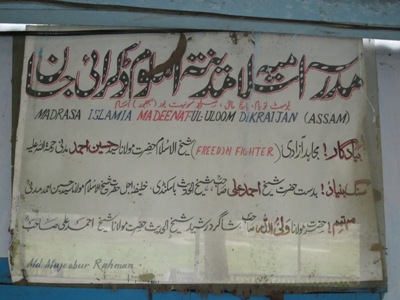 مدرسہ اسلامیہ مدینۃ العلوم ڈکرائی جان
MADRASA ISLAMIA MADEENATUL-ULOOM DIKRAIJAN (ASSAM)
یادگار! مجاہد آزادی (FREEDOM FIGHTER) شیخ الاسلام حضرت مولانا سید حسین احمد مدنی رحمۃ اللہ علیہ
سنگ بنیاد! بدست حضرت شیخ احمد علی صاحب شیخ الحدیث باسکنڈی، خلیفہ اجل حضرت شیخ الاسلام مولانا سید حسین احمد مدنی
مہتمم! حضرت مولانا ولی اللہ صاحب شاگرد رشید شیخ الحدیث حضرت مولانا شیخ احمد علی صاحب
Md. Mujeebur Rahman